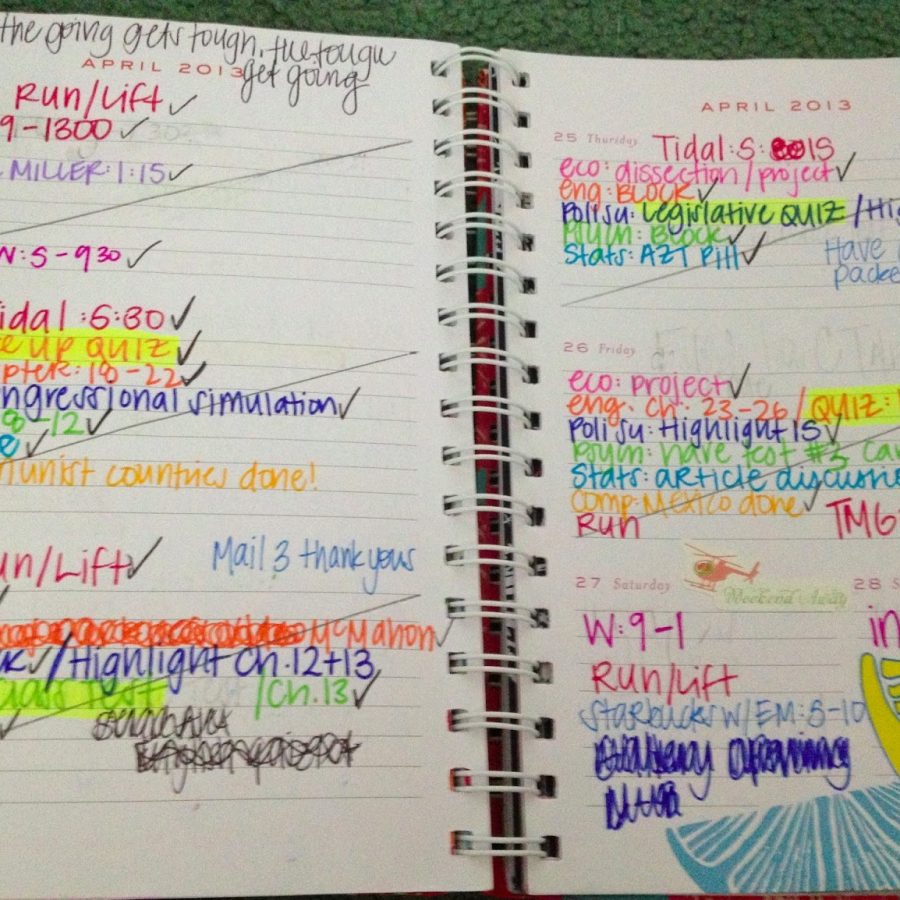 the going gets tough, the tough
get going
APRIL 2013
Run/Lift ✓
9-1300 ✓
MILLER: 1:15 ✓
W: 5-930 ✓
idal : 5:30 ✓
e up QUIZ ✓
pter: 18-22 ✓
ngressional simulation ✓
8-12 ✓
e ✓
munist countries done!
un/Lift ✓
Mail 3 thankyous
McMahon ✓
/Highlight Ch. 12+13
Test /Ch. 13 ✓
APRIL 2013
25 Thursday
Tidal: 5: 15
eco: dissection/project ✓
eng: BLOCK ✓
Polisu: Legislative QUIZ /Hi
Psych: BLOCK ✓
Stats: AZT Pill ✓
Have
packe
26 Friday
eco: project ✓
eng: Ch. 23-26/QUIZ:
Polisu: Highlight 15 ✓
have test #3 Ca
Stats: article discussi
Comp: Mexico done ✓
Run
TM6
27 Saturday
Weekend Away
28 S
W: 9-1
in
Run/Lift
Starbucks W/ EM: 8-10